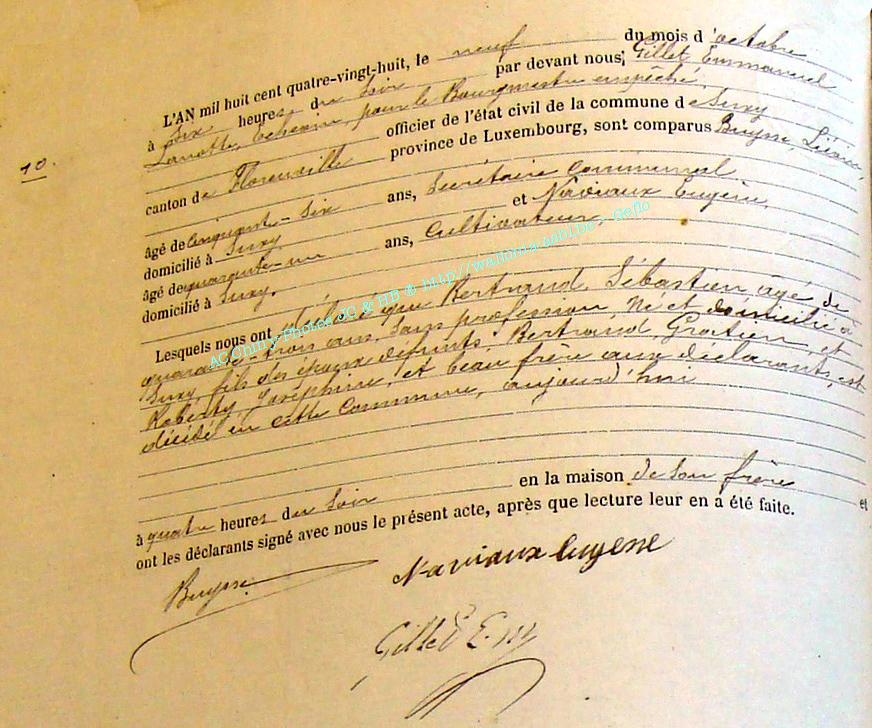 L'AN mil huit cent quatre-vingt-huit, le neuf du mois d'octobre
à Six heures du Soir par devant nous, Gillet Emmanuel
Lanotte, Echevin, pour le Bourgmestre empêché,
officier de l'état civil de la commune de Suxy
canton de Florenville province de Luxembourg, sont comparus Buysse, Liévin,
âgé de Cinquante-Six ans, Secrétaire Communal
domicilié à Suxy et Naviaux Eugène,
âgé de quarante-un ans, Cultivateur
domicilié à Suxy.
Lesquels nous ont déclaré que Bertrand, Sébastien, âgé de
quarante trois ans, Sans profession, Né et domicilié à
Suxy, fils des époux défunts Bertrand, Gratien, et
Roberty, Joséphine, et beau frère aux déclarants, est
décédé en cette Commune, aujourd'hui
à quatre heures du Soir en la maison de Son frère et
ont les déclarants signé avec nous le présent acte, après que lecture leur en a été faite.
10.
Buysse
Naviaux Eugene
Gillet Em
AC Chiny-Photos JC & HB @ http//wallonia.asbl.be - Geflo